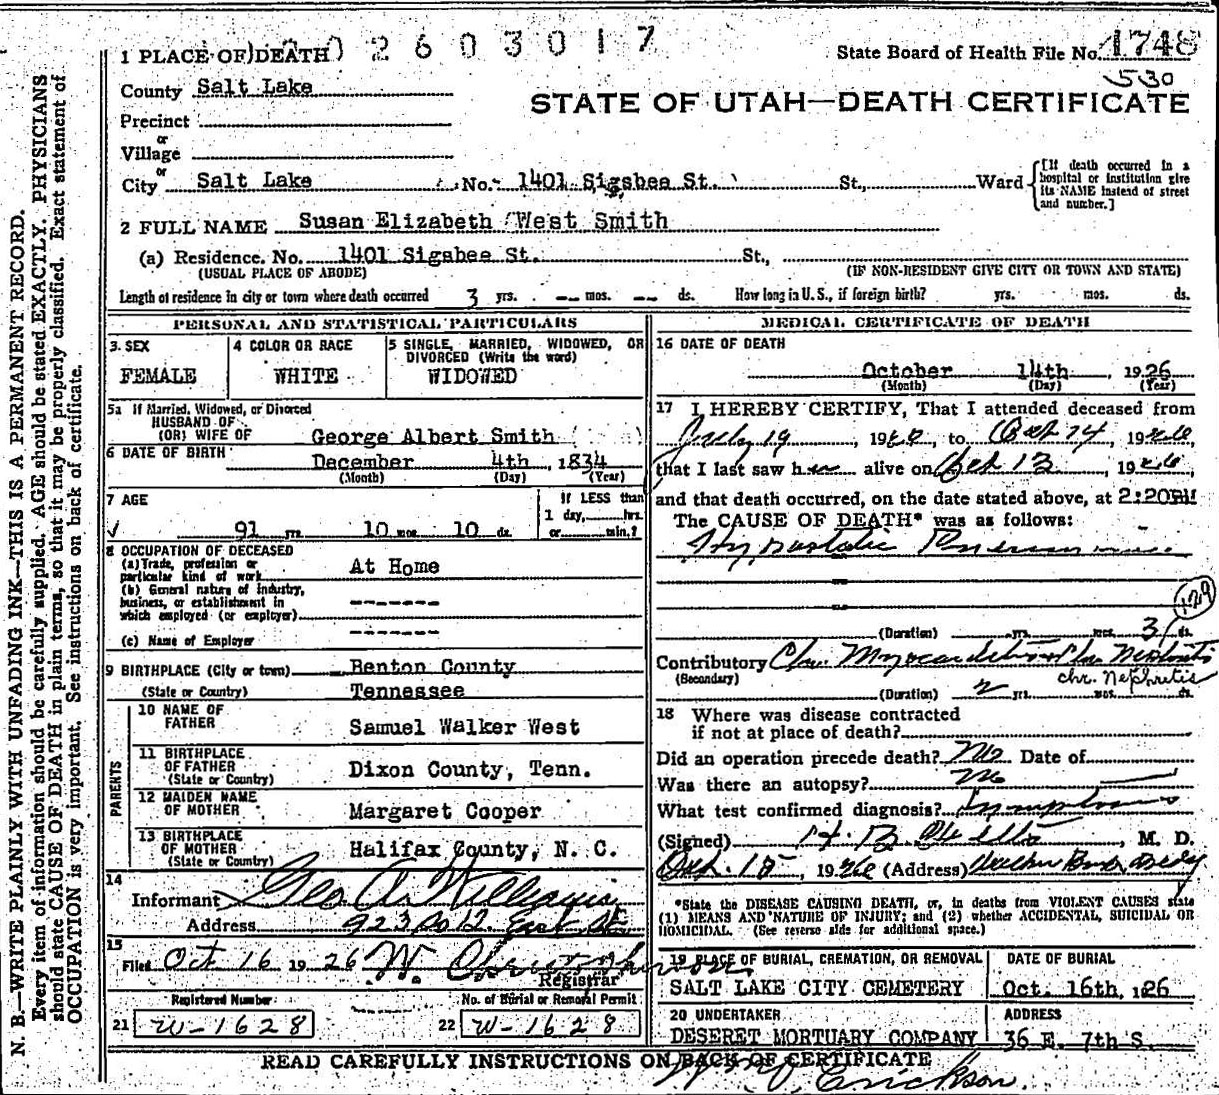 N. B.—WRITE PLAINLY WITH UNFADING INK—THIS IS A PERMANENT RECORD.
Every item of information should be carefully supplied. AGE should be stated EXACTLY. PHYSICIANS
should state CAUSE OF DEATH in plain terms, so that it may be properly classified. Exact statement of
OCCUPATION is very important. See instructions on back of certificate.
1 PLACE OF DEATH 02603017
State Board of Health File No. 1748
530
County Salt Lake
STATE OF UTAH—DEATH CERTIFICATE
Precinct
or
Village
or
City Salt Lake No. 1401 Sigsbee St. St., Ward
[If death occurred in a
hospital or institution give
its NAME instead of street
and number.]
2 FULL NAME Susan Elizabeth West Smith
(a) Residence. No. 1401 Sigsbee St. St.,
(USUAL PLACE OF ABODE) (IF NON-RESIDENT GIVE CITY OR TOWN AND STATE)
Length of residence in city or town where death occurred 3 yrs. -- mos. -- ds. How long in U. S., if foreign birth? yrs. mos. ds.
PERSONAL AND STATISTICAL PARTICULARS
3. SEX
FEMALE
4 COLOR OR RACE
WHITE
5 SINGLE, MARRIED, WIDOWED, OR
DIVORCED (Write the word)
WIDOWED
5a If Married, Widowed, or Divorced
HUSBAND OF
(OR) WIFE OF George Albert Smith
6 DATE OF BIRTH December 4th, 1834
(Month) (Day) (Year)
7 AGE
91 yrs. 10 mos. 10 ds.
If LESS than
1 day, hrs.
or min.?
8 OCCUPATION OF DECEASED
(a) Trade, profession or
particular kind of work At Home
(b) General nature of industry,
business, or establishment in
which employed (or employer) -------
(c) Name of Employer -------
9 BIRTHPLACE (City or town) Benton County
(State or Country) Tennessee
PARENTS
10 NAME OF
FATHER Samuel Walker West
11 BIRTHPLACE
OF FATHER
(State or Country) Dixon County, Tenn.
12 MAIDEN NAME
OF MOTHER Margaret Cooper
13 BIRTHPLACE
OF MOTHER
(State or Country) Halifax County, N. C.
14
Informant Geo A. Williams
Address 923 So 12 East St
15
Filed Oct 16 1926 W.
Registrar
Registered Number
21 W-1628
No. of Burial or Removal Permit
22 W-1628
MEDICAL CERTIFICATE OF DEATH
16 DATE OF DEATH
October 14th, 1926
(Month) (Day) (Year)
17 I HEREBY CERTIFY, That I attended deceased from
July 19, 19 to Oct 14, 1926
that I last saw her alive on Oct 13, 1926,
and that death occurred, on the date stated above, at 2:20PM
The CAUSE OF DEATH* was as follows:
Hypostatic Pneumonia
129
(Duration) yrs. mos. 3 ds.
Contributory Chr. Myocarditis + Chr. Nephritis
(Secondary) chr. Nephritis
(Duration) 2 yrs. mos. ds.
18 Where was disease contracted
if not at place of death?
Did an operation precede death? No Date of
Was there an autopsy? No
What test confirmed diagnosis? Symptoms
(Signed) H. B. , M. D.
Oct. 15, 1926 (Address)
*State the DISEASE CAUSING DEATH, or, in deaths from VIOLENT CAUSES state
(1) MEANS AND NATURE OF INJURY; and (2) whether ACCIDENTAL, SUICIDAL OR
HOMICIDAL. (See reverse side for additional space.)
19 PLACE OF BURIAL, CREMATION, OR REMOVAL
SALT LAKE CITY CEMETERY
DATE OF BURIAL
Oct. 16th, 126
20 UNDERTAKER
DESERET MORTUARY COMPANY
ADDRESS
36 E. 7th S.
READ CAREFULLY INSTRUCTIONS ON BACK OF CERTIFICATE
Erickson.